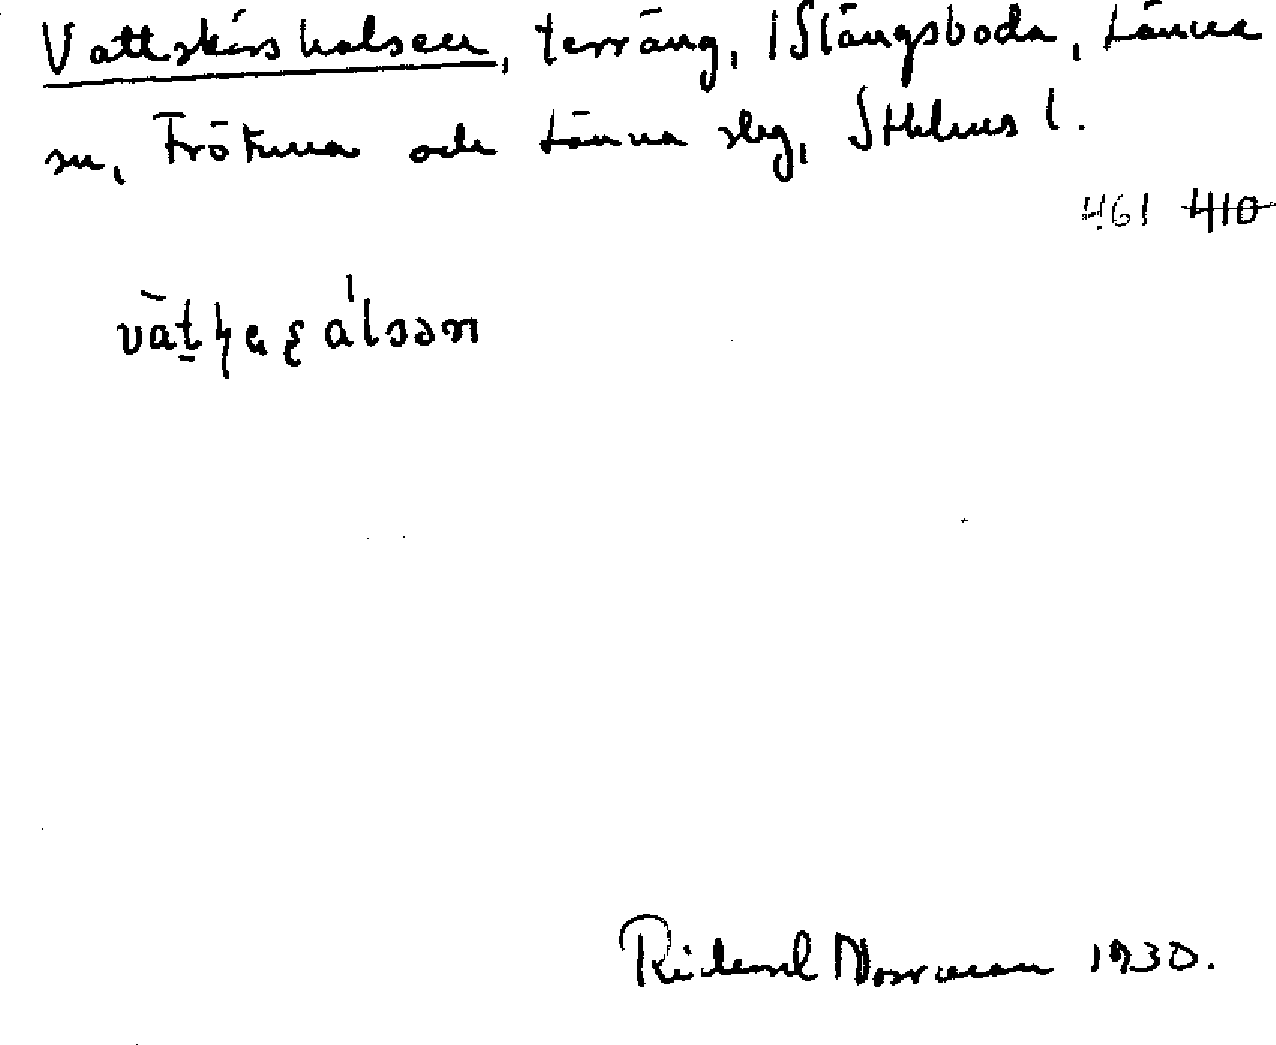 Vattskärshalsen, terräng, Slängsboda, Länna
sn, Frötuna och Länna slg, Sthlms l.
461 410
Rickard Norrman 1930.